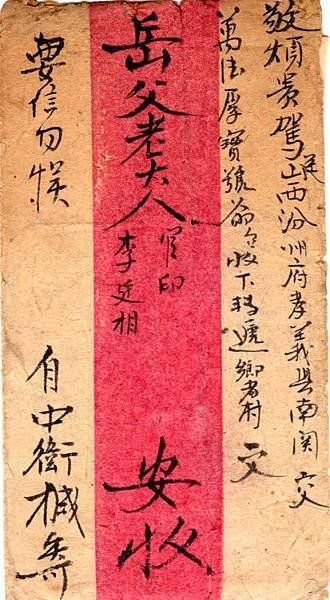 敬煩貴駕至山西汾州府孝義縣南関交
萬德厚寶號公台收下轉遞鄉者村交
岳父老大人官印李廷相安收
要信勿悮
自中衛椷寄